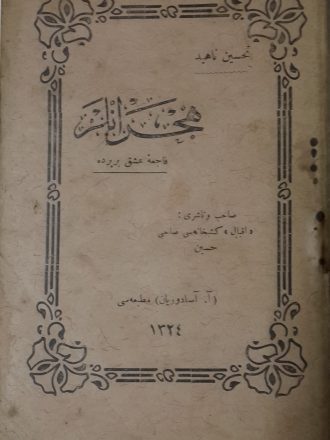 تحسین ناهید
هجرانلر
فاجعهٔ عشق برپرده
صاحب و ناشری :
« اقبال » کتبخانه‌سی صاحبی
حسین
(آ. آصادوریان) مطبعه‌سی
١٣٢٤